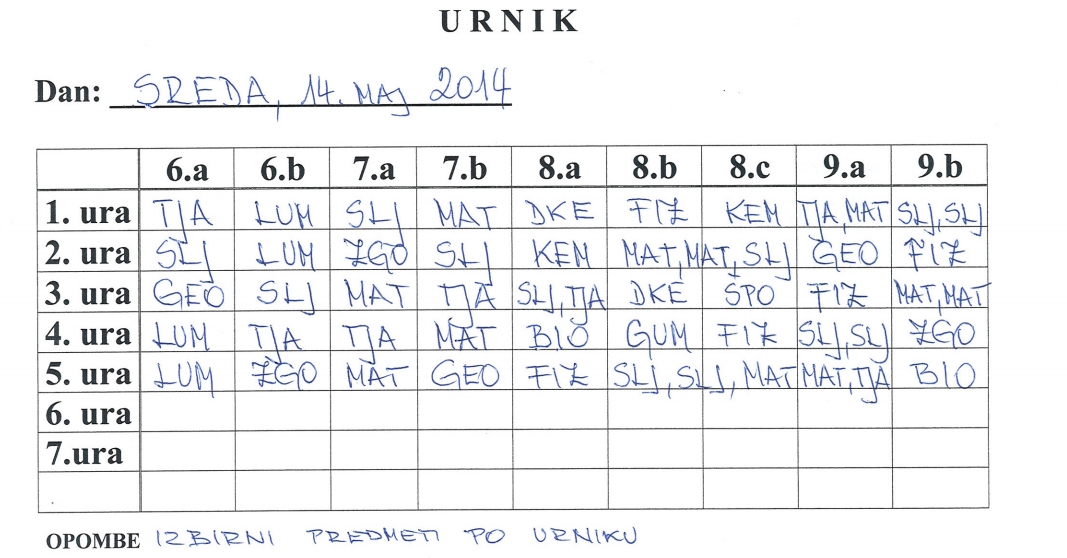 URNIK
Dan: SREDA, 14. MAJ 2014
6.a 6.b 7.a 7.b 8.a 8.b 8.c 9.a 9.b
1. ura TJA LUM SLJ MAT DKE FIZ KEM TJA, MAT SLJ, SLJ
2. ura SLJ LUM ZGO SLJ KEM MAT, MAT, SLJ GEO FIZ
3. ura GEO SLJ MAT TJA SLJ, TJA DKE ŠPO FIZ MAT, MAT
4. ura LUM TJA TJA MAT BIO GUM FIZ SLJ, SLJ ZGO
5. ura LUM ZGO MAT GEO FIZ SLJ, SLJ, MAT MAT, TJA BIO
6. ura
7.ura
OPOMBE IZBIRNI PREDMETI PO URNIKU